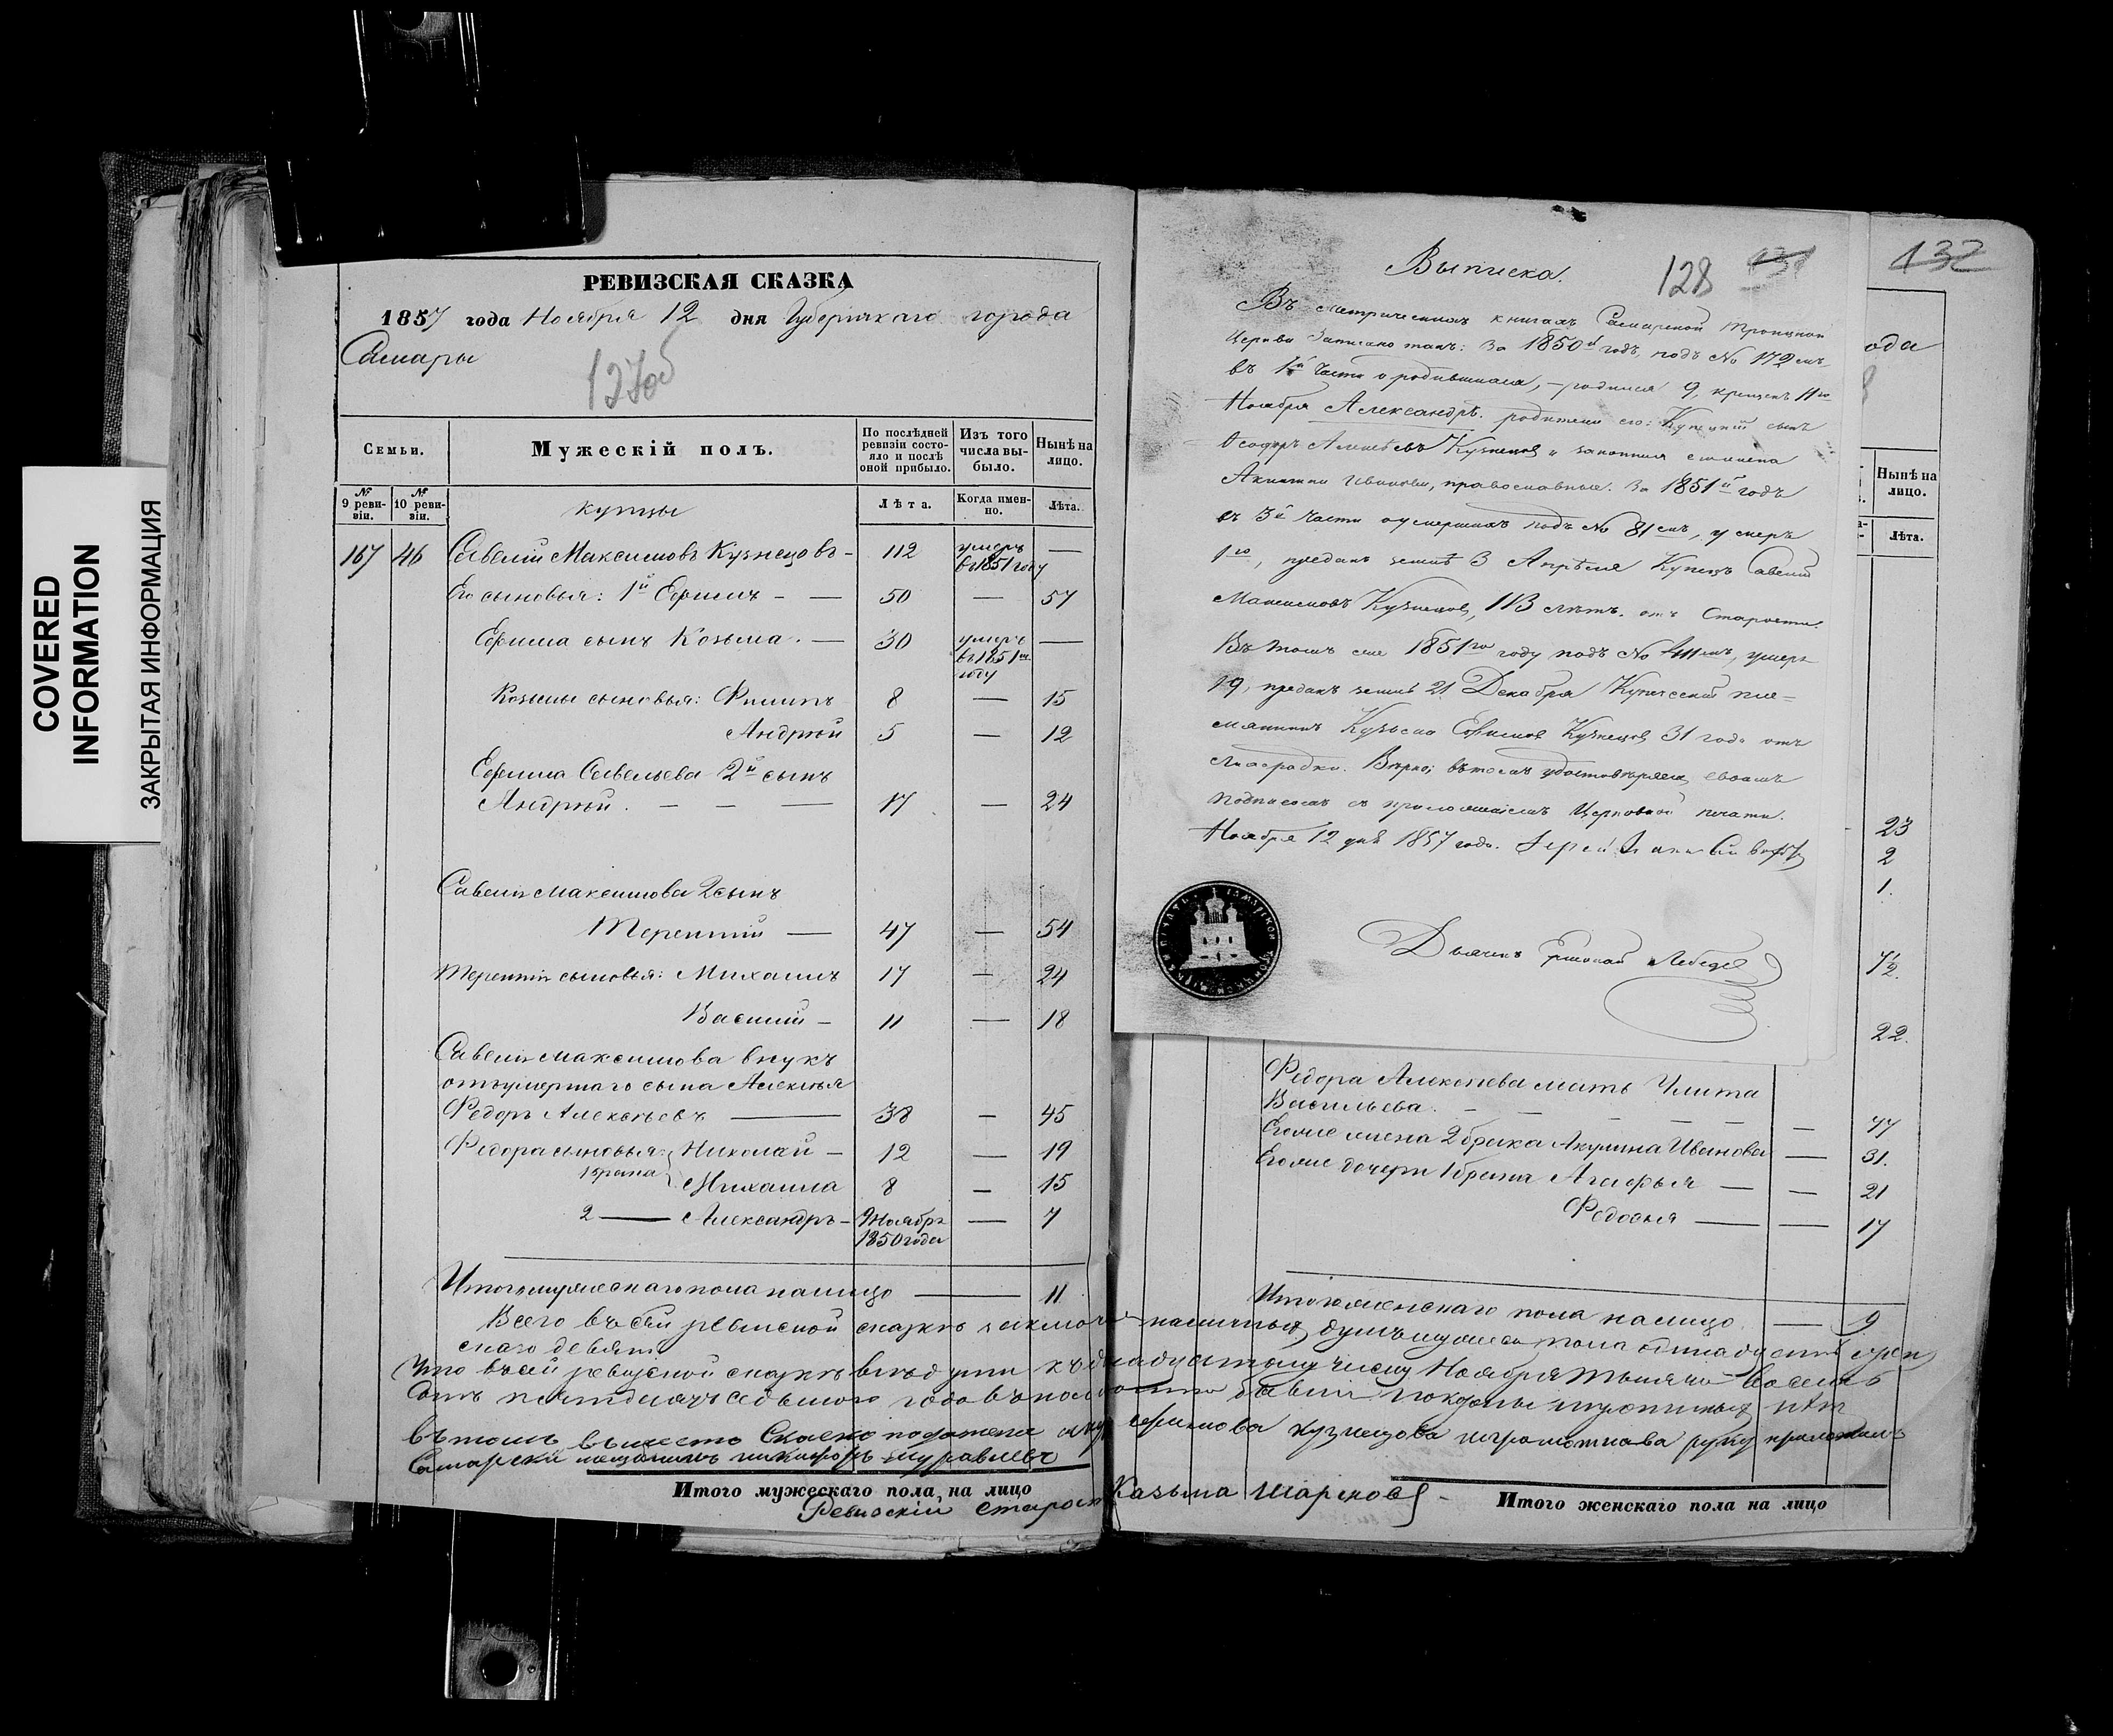 COVERED
INFORMATION
ЗАКРЫТАЯ ИНФОРМАЦИЯ
РЕВИЗСКАЯ СКАЗКА
1857 года Ноября 12 дня Губернскаго города
Самары
127об
Семьи.
Мужескій полъ.
По послѣдней ревизіи состояло и послѣ оной прибыло.
Изъ того числа выбыло.
Нынѣ на лицо.
№ 9 ревизіи.
№ 10 ревизіи.
купцы
Лѣта.
Когда именно.
Лѣта.
167 46 Савелій Максимовъ Кузнецовъ - 112 умеръ въ 1851 году —
Его сыновья: 1й Ефимъ - — 50 — 57
Ефима сынъ Козьма. — 30 умеръ въ 1851м году —
Козьмы сыновья: Филипъ 8 — 15
Андрей 5 — 12
Ефима Савельева 2й сынъ
Андрей. — — — 17 — 24
Савелія Максимова 2 сынъ
Терентій — 47 — 54
Терентія сыновья: Михаилъ 17 — 24
Василий - 11 — 18
Савелія Максимова внукъ
отъ умершаго сына Алексѣя
Федоръ Алексѣевъ — 38 - 45
Федора сыновья: Николай - 12 — 19
1 брака Михаила 8 — 15
2 — Александръ - 9 Ноября 1850 года — 7
Итого мужескаго пола налицо — 11
Всего въ сей ревизской сказкѣ наличныхъ душъ мужеска пола одинадцать женскаго девять
Что въ сей ревизской сказкѣ всѣ души
Ноября тысяча восемь
сотъ пятдесятъ седьмого года
Ефимова Кузнецова руку приложилъ
Самарскій мещанинъ Никифоръ Журавлевъ
Итого мужескаго пола на лицо
Ревизскій Староста Казьма Шариковъ
Итого женскаго пола на лицо
132
ода
Нынѣ на лицо.
Лѣта.
23
2
1.
7½.
22.
Выписка.
128
Въ метрическихъ книгахъ Самарской Троицкой
Церкви записано такъ: За 1850й годъ, подъ № 172мъ
въ 1й части о родившихся, — родился 9, крещенъ 11го
Ноября Александръ. родители его: Купецкій сынъ
Ѳеодоръ Алексѣевъ Кузнецовъ и законная его жена
Акилина Иванова, православные. За 1851й годъ
въ 3й части о умершихъ подъ № 81мъ, умеръ
1го, преданъ землѣ 3 Апрѣля Купецъ Савелій
Максимовъ Кузнецовъ, 113 лѣтъ. отъ Старости.
Въ томъ же 1851го году подъ № умеръ
19, преданъ землѣ 21 Декабря Купеческій племянникъ Кузьма Ефимовъ Кузнецовъ 31 года отъ
лихорадки. Вѣрно; въ томъ удостовѣряемъ своимъ
подписомъ съ приложеніемъ Церковной печати.
Ноября 12 дня 1857 года. Іерей
Дьячекъ Лебедев
Федора Алексѣева мать Улита
Васильева. - — — — — 77
Его же жена 2 брака Акулина Иванова — 31.
Его же дочери 1 брака Агафья — — 21
Федосья — — 17
Итого женскаго пола налицо — 9